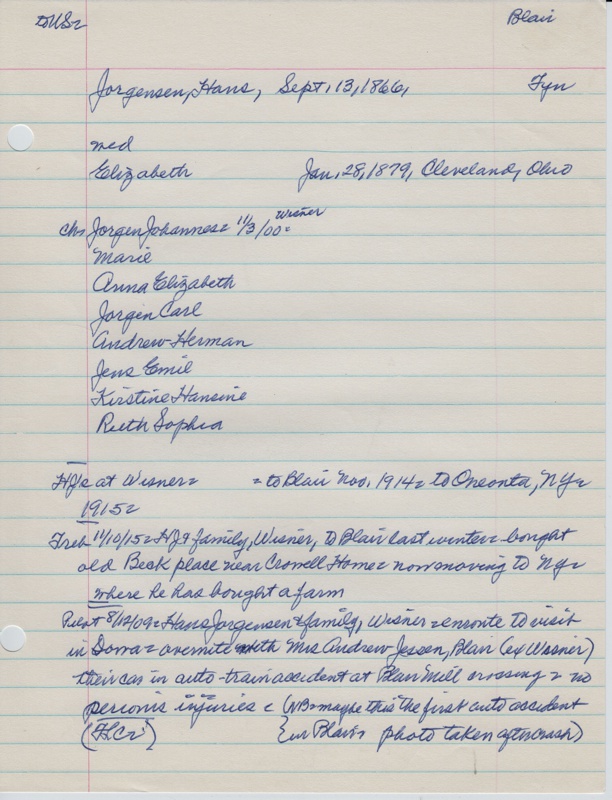 to US= Blair
Jorgensen, Hans, Sept. 13, 1866, Fyn
med
Elizabeth Jan. 28, 1879, Cleveland, Ohio
chs Jorgen Johannes= 11/3/00= Wisner
Marie
Anna Elizabeth
Jorgen Carl
Andrew Herman
Jens Emil
Kirstine Hansine
Ruth Sophia
HJs at Wisner= =to Blair Nov. 1914= to Oneonta, NY=
1915=
11/10/15= HJ & family, Wisner, to Blair last winter= bought
old Beck place near Crowell Home= now moving to NY=
where he has bought a farm
8/12/09= Hans Jorgensen & family, Wisner= enroute to visit
in Iowa= overnite with Mrs Andrew Jessen, Blair (ex Wisner)
their car in auto-train accident at Blair Mill crossing= no
injuries= (NB= maybe this the first auto accident
(HC=) in Blair= photo taken after crash)